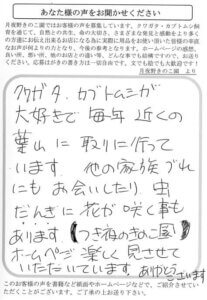 あなた様の声をお聞かせください
月夜野きのこ園ではお客様の声を募集しています。クワガタ・カブトムシ飼
育を通じて、自然との共生、命の大切さ、さまざまな発見と感動をより多く
の方達にお伝え出来るお店になる為に実際に商品をお使い頂いた皆様の率直
なお声が何よりの力となり、今後の参考となります。ホームページの感想、
良い所、悪い所、他のお店との違い等、どんな事でも結構ですので、お寄せ
ください。応募はがきの書き方は一切自由です。文でも絵でも大歓迎です!
月夜野きのこ園 より
クワガタ、カブトムシガ
大好きで毎年近くの
葉山に取りに行って
います。他の家族づれ
にもお会いしたり、虫
だんぎに花が咲く事も
あります(つき夜のきのこ園)
ホームページ楽しく見させて
いただいています。ありがとうございます
このお客様の声を書籍など紙面やホームページなどで、ご紹介させてい
ただくことがございます。ご了承の上お送り下さい。